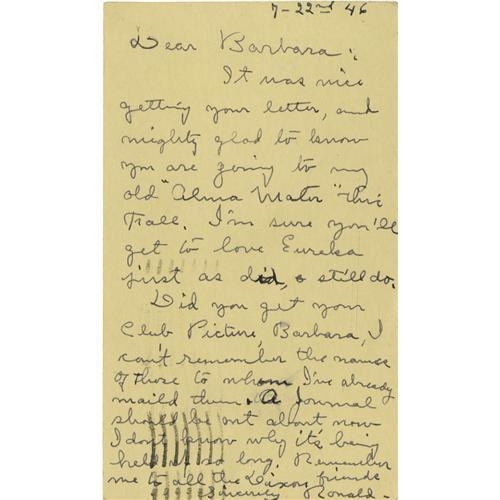 7-22nd 46
Dear Barbara:
It was nice
getting your letter, and
mighty glad to know
you are going to my
old "Alma Mater" this
Fall. I'm sure you'll
get to love Eureka
just as I did, & still do.
Did you get your
Club Picture, Barbara, I
can't remember the names
of those to whom I've already
maild them. A Journal
should be out about now
I don't know why it's being
held so long. Remember
me to all the Dixon friends
Sincerely Ronald-